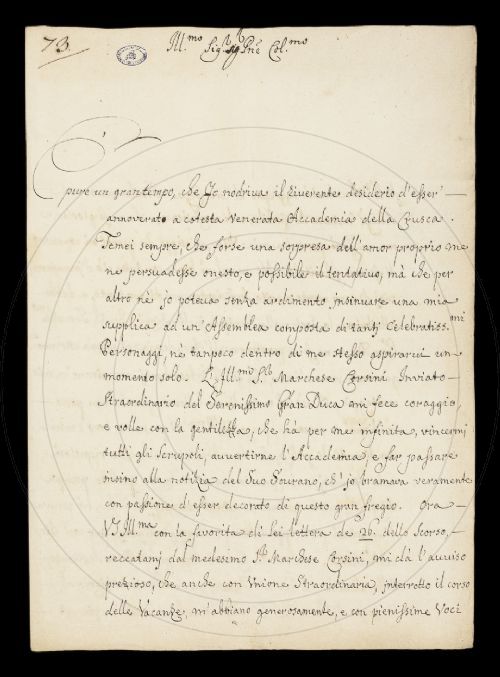 73.
Ill.mo Sig.r Sig.r Pne Col.mo
È pure un gran tempo, che Jo nodriva il riverente desiderio d'esser
annoverato a cotesta venerata Accademia della Crusca.
Temei sempre, che forse una sorpresa dell'amor proprio me
ne persuadesse onesto, e possibile il tentativo, mà che per
altro nè jo poteva senza ardimento insinuare una mia
supplica ad un'Assemblea composta di tantj Celebratiss.mi
Personaggi, nè tanpoco dentro di me stesso aspirarvi un
momento solo. L'Ill.mo S.r Marchese Corsini Inviato
Straordinario del Serenissimo Gran Duca mi fece coraggio,
e volle con la gentilezza, che hà per me infinita, vincermj
tutti gli scrupoli, avvertirne l'Accademia, e far passare
insino alla notizia del Suo Sovrano, ch'jo bramava veramente
con passione d'esser decorato di questo gran fregio. Ora
V.S. Ill.ma con la favorita di lei lettera de 26. dello scorso,
reccatamj dal medesimo S.r Marchese Corsini, mi dà l'avviso
prezioso, che anche con Unione Straordinaria, interrotto il corso
delle Vacanze, m'abbiano generosamente, e con pienissime Voci